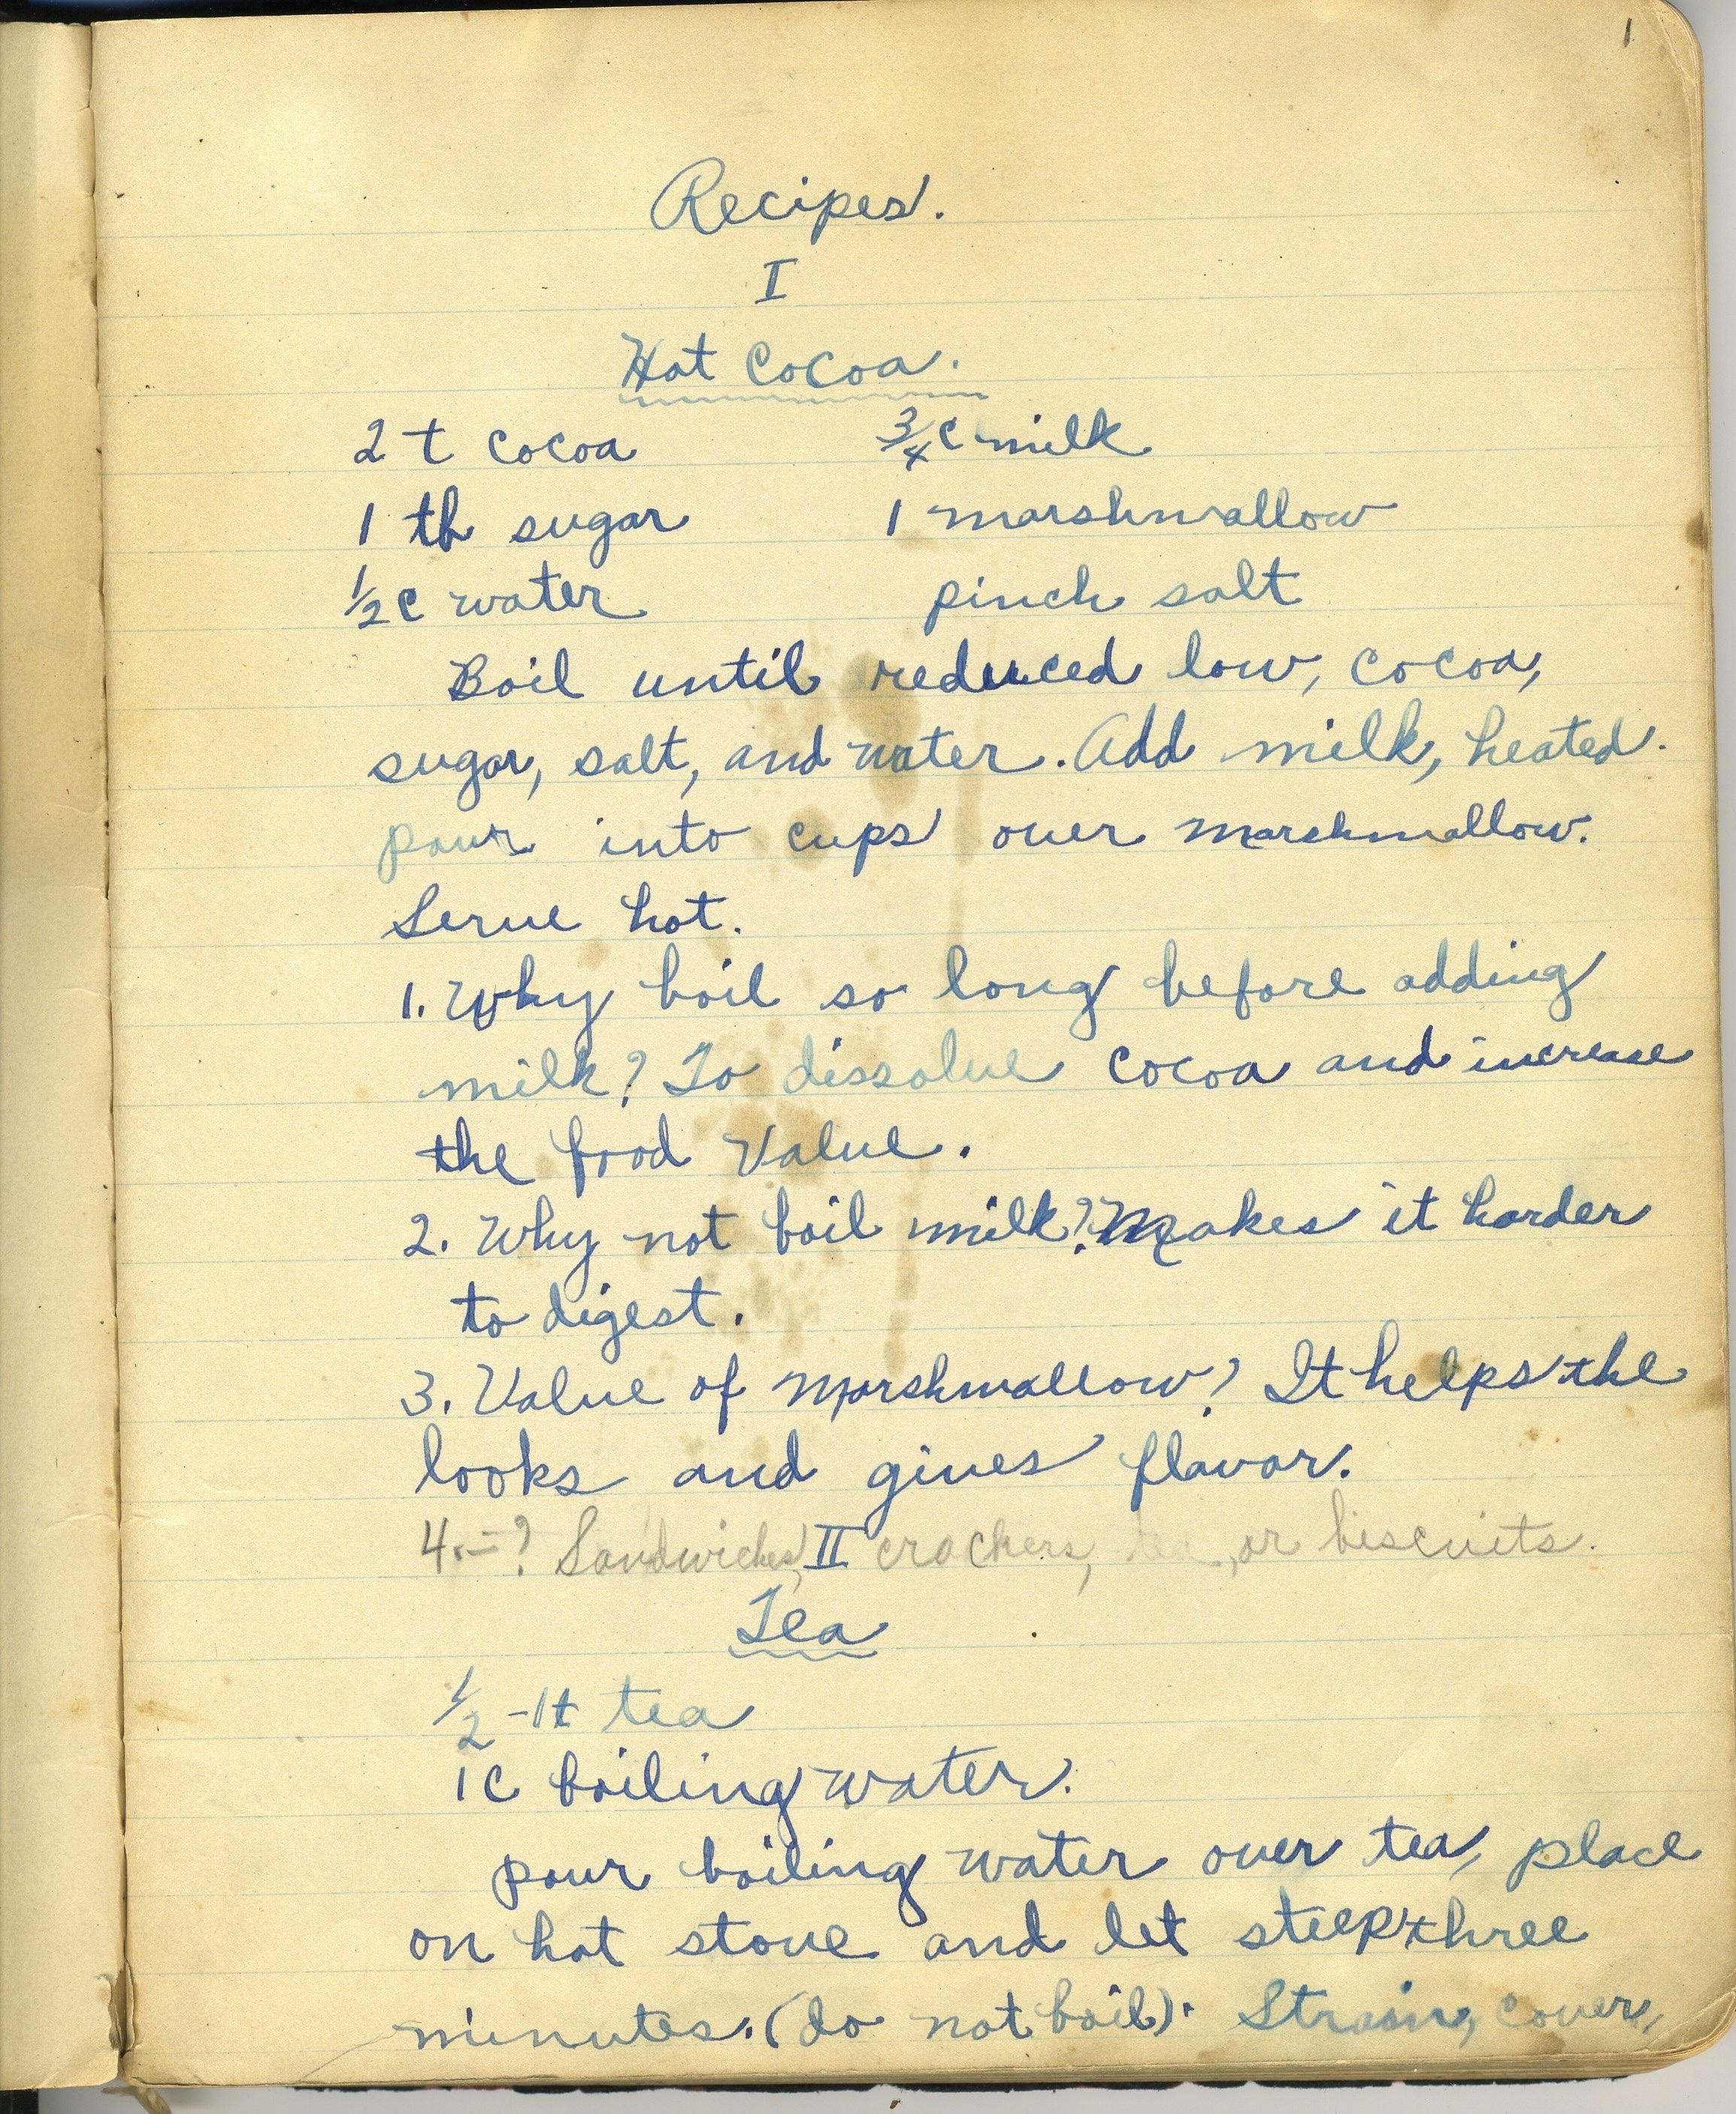 1
Recipes.
I
Hot Cocoa.
2 t cocoa 3/4 c milk
1 tb sugar 1 marshmallow
1/2 c water pinch salt
Boil until reduced low, cocoa,
sugar, salt, and water. Add milk, heated.
pour into cups over marshmallow.
Serve hot.
1. Why boil so long before adding
milk? To dissolve cocoa and increase
the food value.
2. Why not boil milk? Makes it harder
to digest.
3. Value of Marshmallow? It helps the
looks and gives flavor.
4.-? Sandwiches, crackers, , or biscuits.
II
Tea
1/2 - 1 t tea
1 c boiling water.
pour boiling water over tea, place
on hot stove and let steep three
minutes. (do not boil). Strain, cover,